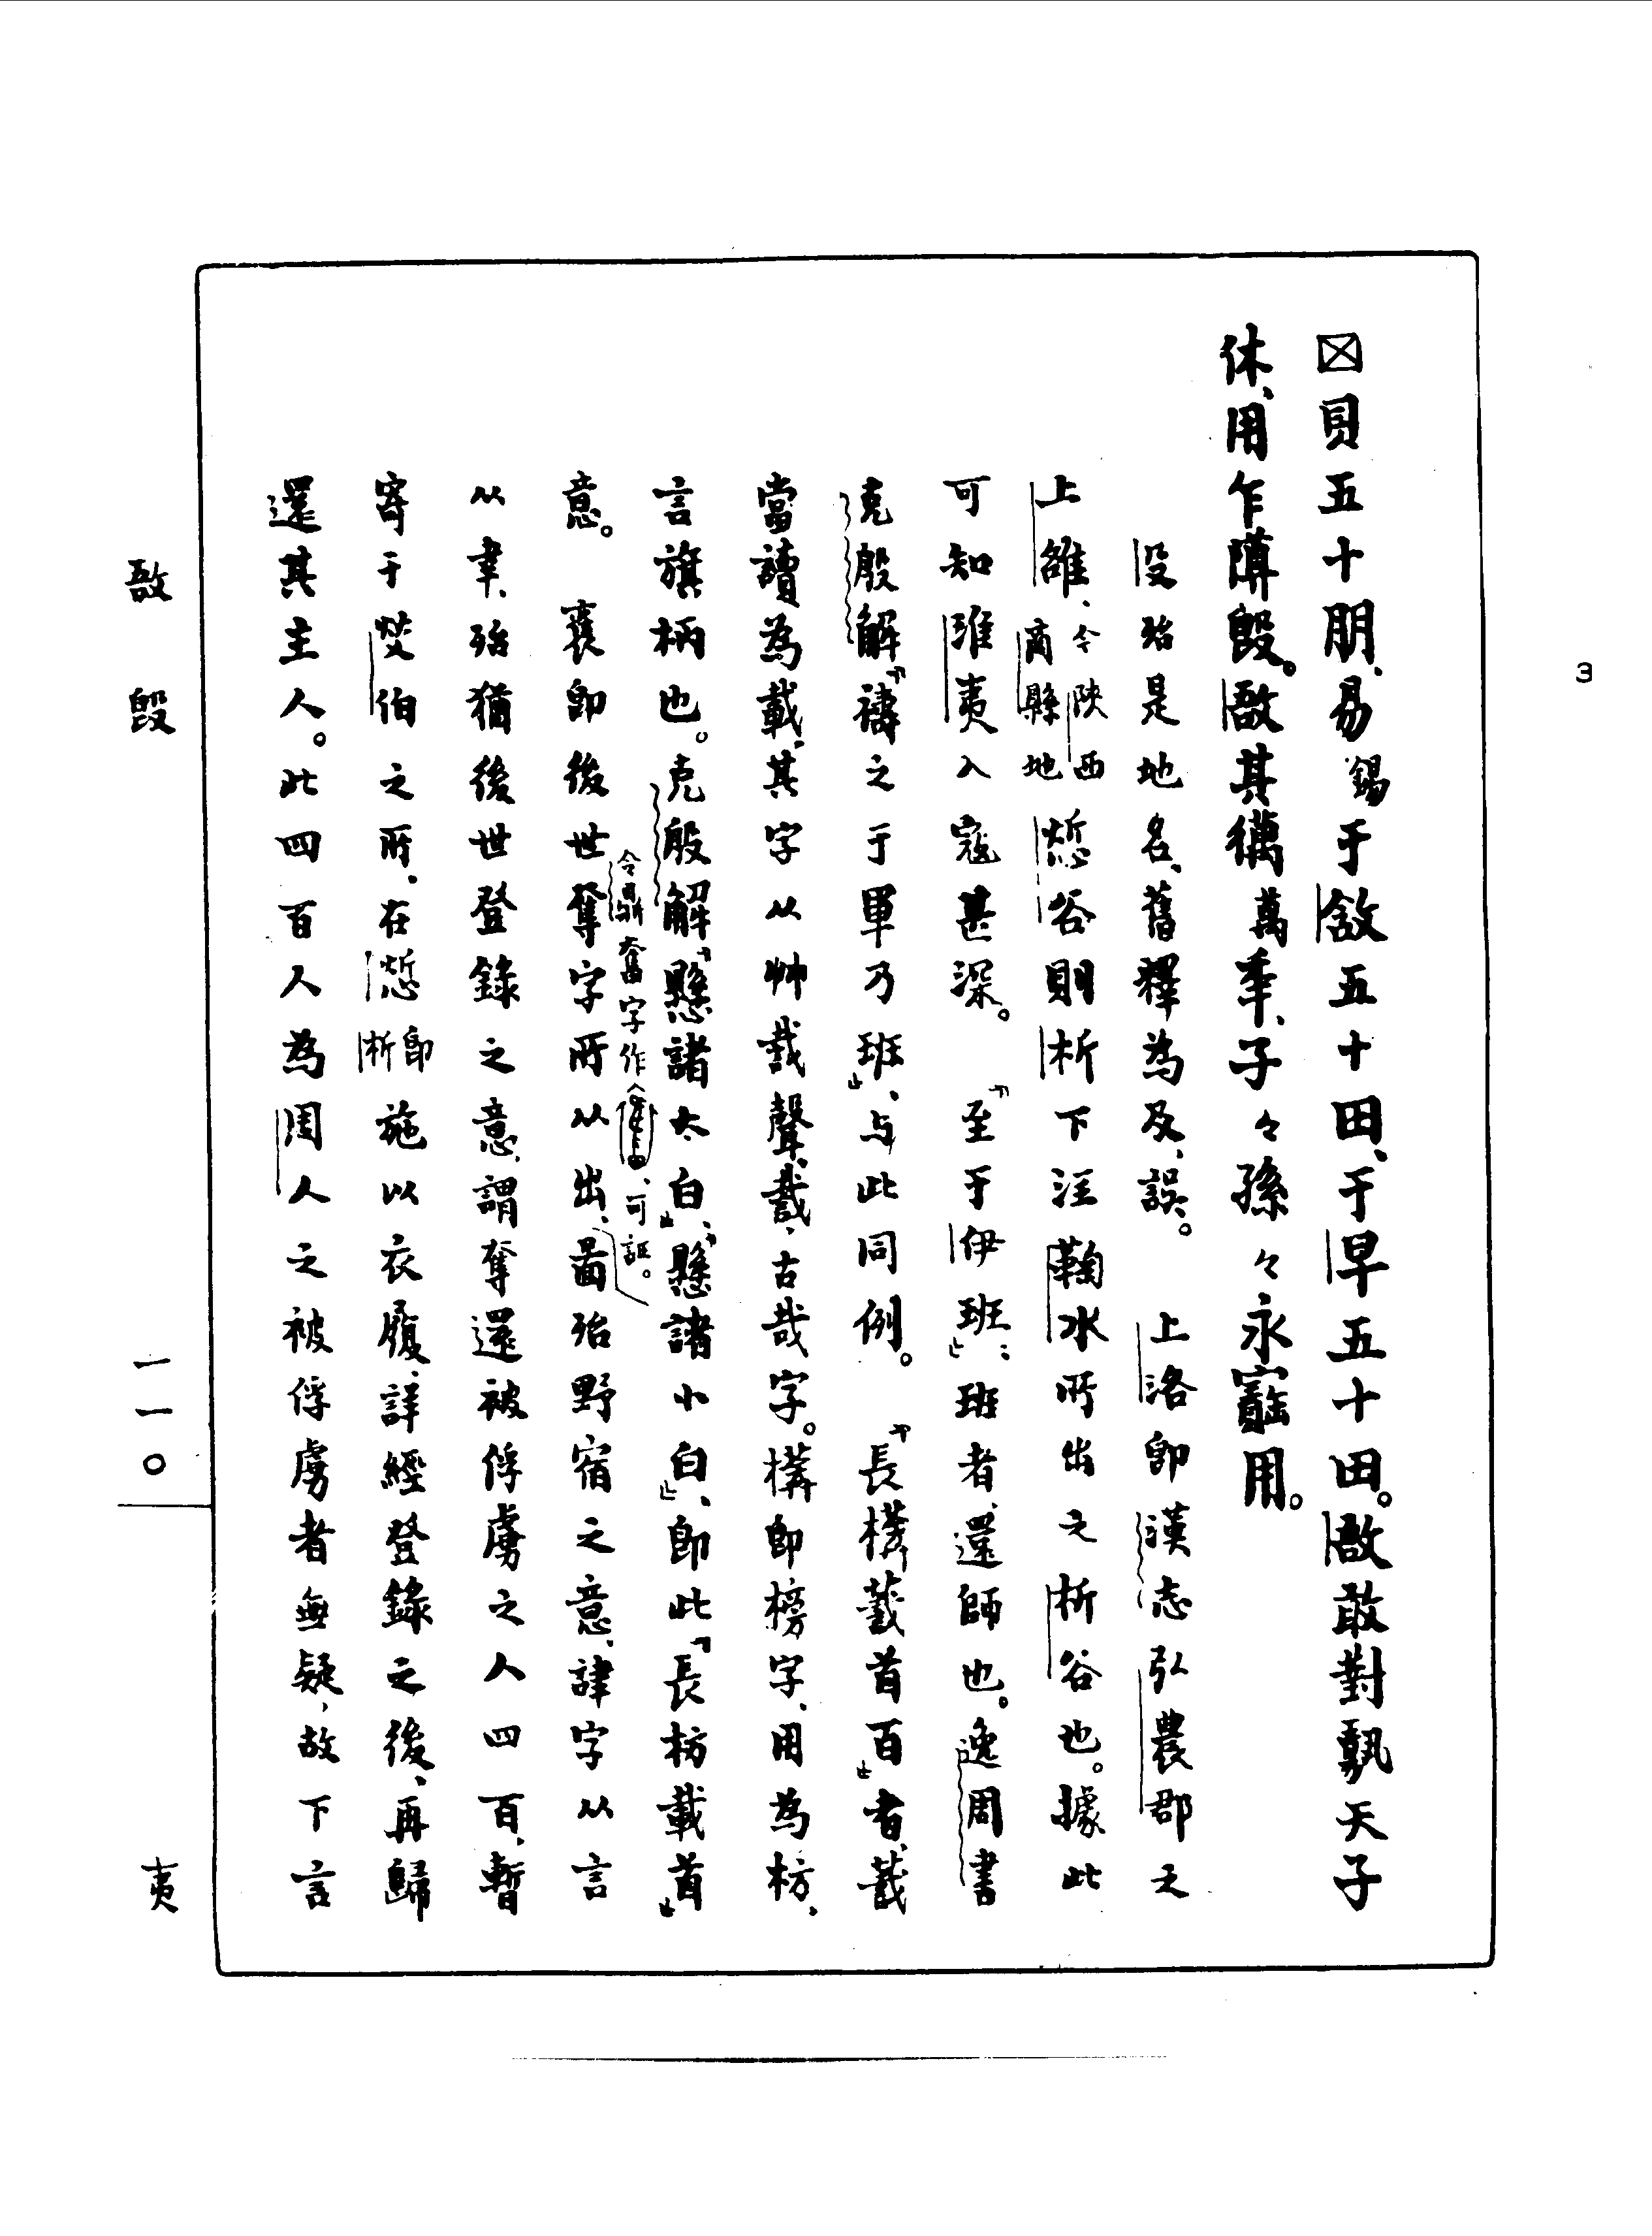 ☒貝五十朋、易錫于敜五十田、于早五十田。敔敢對𩰬天子
休、用乍䵼𣪘。敔其萬萬年、子々孫々永寶用。
𣪊殆是地名、舊釋為及、誤。　上洛即漢志弘農郡之
上雒、今陝西商縣地 㤭谷則析下注鞠水所出之析谷也。據此
可知淮夷入寇甚深。　『至于伊班』：班者、還師也。逸周書
克殷解『禱之于軍乃班』、与此同例。　『長榜蕺首百』者、蕺
當讀為載、其字从艸𢦏聲、𢦏、古哉字。榜即榜字、用為枋、
言旗柄也。克殷解『懸諸太白』、『懸諸小白』、即此『長枋載首』
意。　襄即後世奪字所从出、啚殆野宿之意、諱字从言
令鼎奮字作、可証。
从韋、殆猶後世登錄之意、謂奪還被俘虜之人四百、暫
寄于焂伯之所、在㤭即析施以衣履、詳經登錄之後、再歸
還其主人。此四百人為周人之被俘虜者無疑、故下言
敔𣪘
一一〇
夷
3